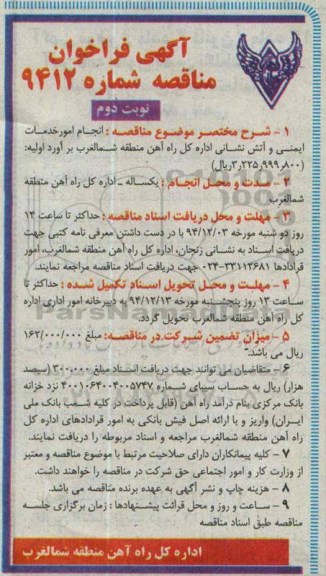 آگهی فراخوان
مناقصه شماره ۹۴۱۲
نوبت دوم
۱ - شرح مختصر موضوع مناقصه : انجام امور خدمات
ایمنی و آتش نشانی اداره کل راه آهن منطقه شمالغرب بر آورد اولیه:
(۳٫۲۲۵٫۹۹۹٫۸۰۰ریال)
۲ - مدت و محل انجام : یکساله - اداره کل راه آهن منطقه
شمالغرب
۳ - مهلت و محل دریافت اسناد مناقصه : حداکثر تا ساعت ۱۴
روز دو شنبه مورخه ۹۴/۱۲/۰۳ با در دست داشتن معرفی نامه کتبی جهت
دریافت اسناد به نشانی زنجان، اداره کل راه آهن منطقه شمالغرب، امور
قرادادها ۳۳۱۱۳۶۸۱-۰۲۴ جهت دریافت اسناد مناقصه مراجعه نمایند.
۴ - مهلت و محل تحویل اسناد تکمیل شده : حداکثر تا
ساعت ۱۳ روز پنجشنبه مورخه ۹۴/۱۲/۱۳ به دبیرخانه امور اداری اداره
کل راه آهن منطقه شمالغرب تحویل گردد.
۵ - میزان تضمین شرکت در مناقصه: مبلغ ۱۶۲/۰۰۰/۰۰۰
ریال می باشد.
۶ - متقاضیان می توانند جهت دریافت اسناد مبلغ ۳۰۰٫۰۰۰ (سیصد
هزار) ریال به حساب سیبای شماره ۴۰۰۱۰۶۴۰۰۴۰۰۵۷۴۷ نزد خزانه
بانک مرکزی بنام درآمد راه آهن (قابل پرداخت در کلیه شعب بانک ملی
ایران) واریز و با ارائه اصل فیش بانکی به امور قرادادهای اداره کل
راه آهن منطقه شمالغرب مراجعه و اسناد مربوطه را دریافت نمایند.
۷ - کلیه پیمانکاران دارای صلاحیت مرتبط با موضوع مناقصه و معتبر
از وزارت کار و امور اجتماعی حق شرکت در مناقصه را خواهند داشت.
۸ - هزینه چاپ و نشر آگهی به عهده برنده مناقصه می باشد.
۹ - ساعت و روز و محل قرائت پیشنهادها : زمان برگزاری جلسه
مناقصه طبق اسناد مناقصه
اداره کل راه آهن منطقه شمالغرب